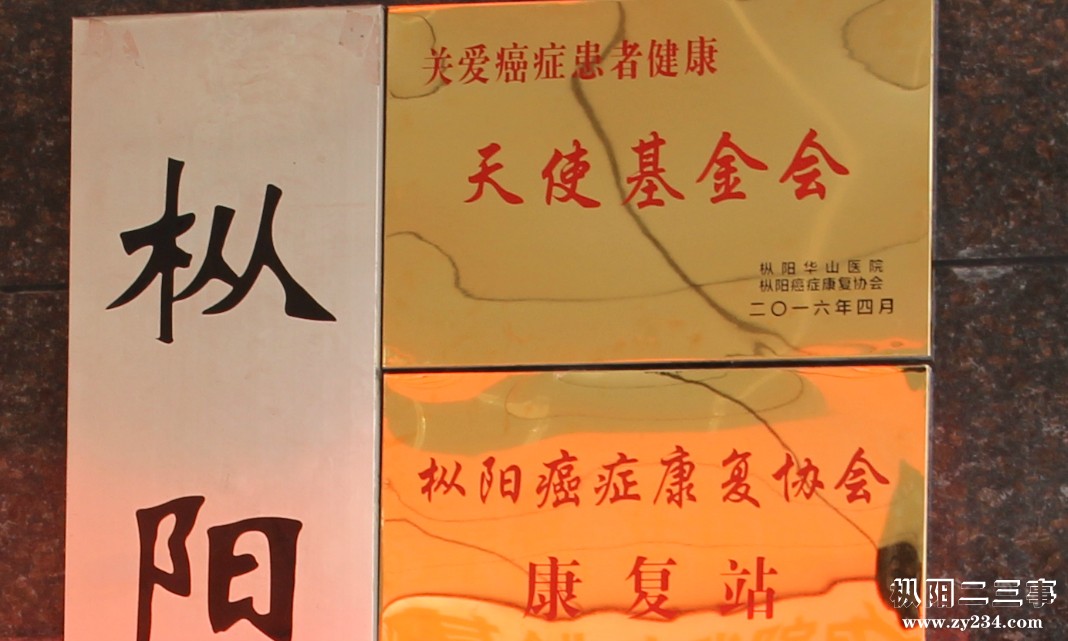 枞阳
关爱癌症患者健康
天使基金会
枞阳华山医院
枞阳癌症康复协会
二〇一六年四月
枞阳癌症康复协会
康复站
枞阳二三事
www.zy234.com